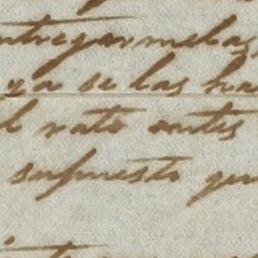 ntregarmelas
ya se las ha
l rato antes
supuesto que